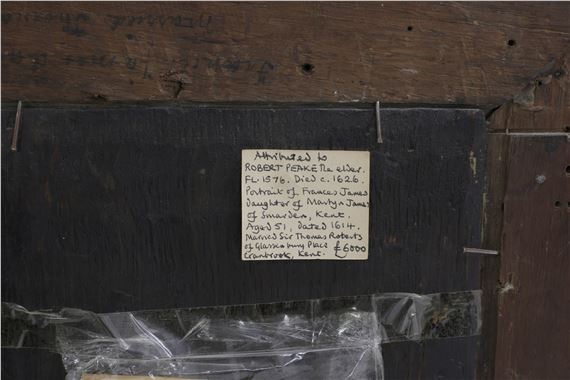 Attributed to
ROBERT PEAKE The elder.
FL. 1576. Died c. 1626.
Portrait of Frances James
Daughter of Martyn James
of Smarden, Kent.
Aged 51, Dated 1614.
Married Sir Thomas Roberts
of Glassenbury Place
Cranbrook, Kent. £6000